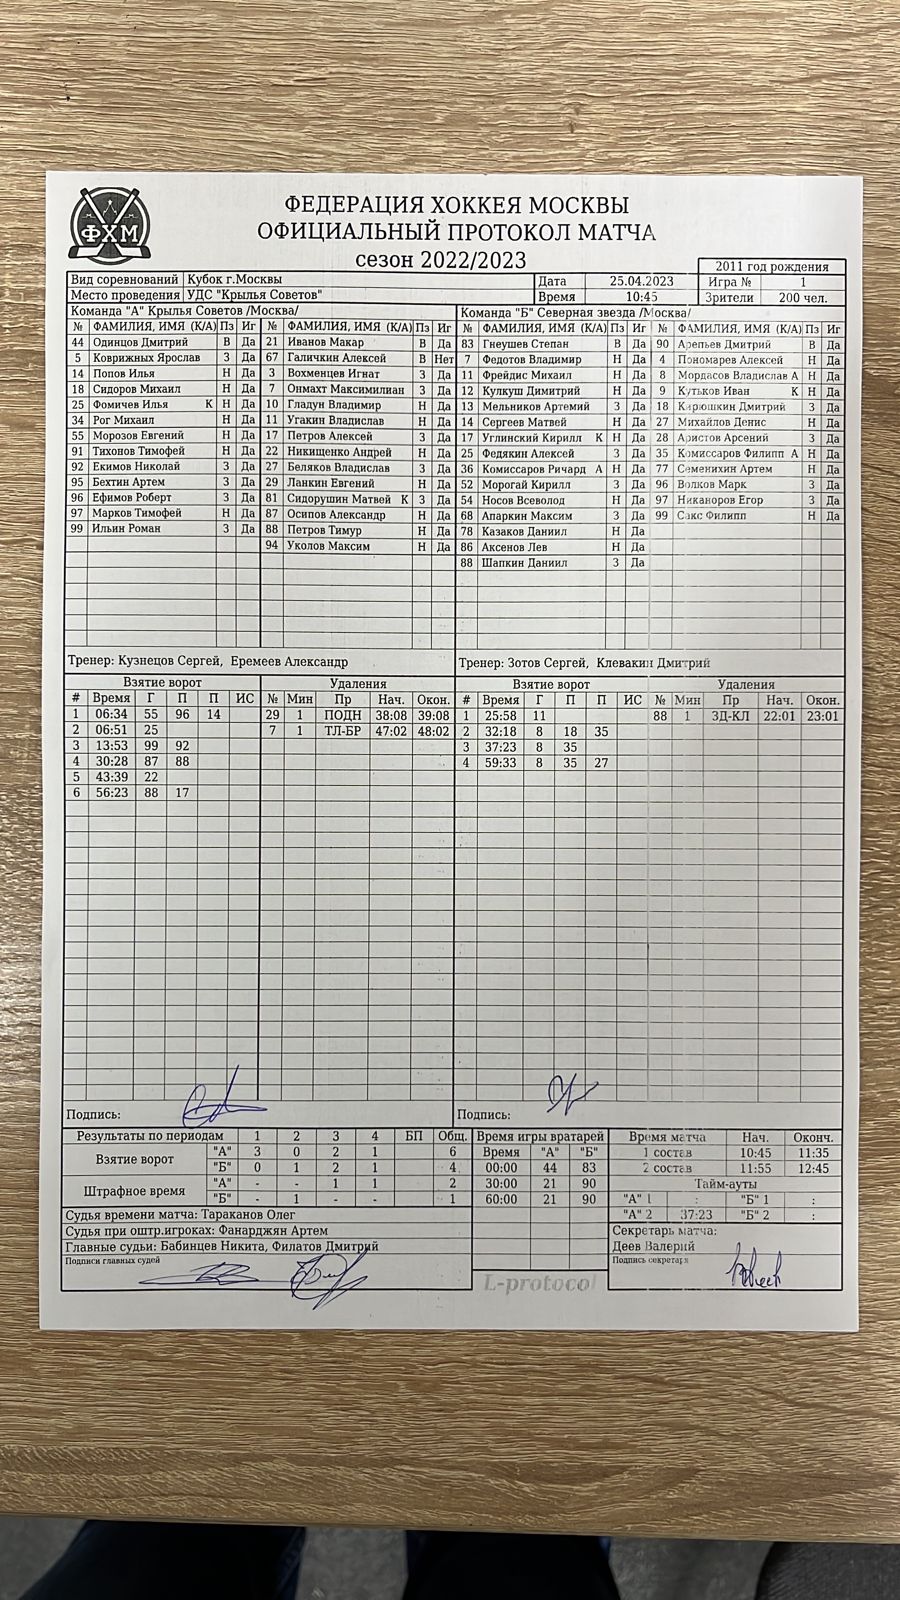 ФХМ
ФЕДЕРАЦИЯ ХОККЕЯ МОСКВЫ
ОФИЦИАЛЬНЫЙ ПРОТОКОЛ МАТЧА
сезон 2022/2023
2011 год рождения
Вид соревнований Кубок г.Москвы Дата 25.04.2023 Игра № 1
Место проведения УДС "Крылья Советов" Время 10:45 Зрители 200 чел.
Команда "А" Крылья Советов /Москва/ Команда "Б" Северная звезда /Москва/
№ ФАМИЛИЯ, ИМЯ (К/А) Пз Иг № ФАМИЛИЯ, ИМЯ (К/А) Пз Иг № ФАМИЛИЯ, ИМЯ (К/А) Пз Иг № ФАМИЛИЯ, ИМЯ (К/А) Пз Иг
44 Одинцов Дмитрий В Да 21 Иванов Макар В Да 83 Гнеушев Степан В Да 90 Арепьев Дмитрий В Да
5 Коврижных Ярослав З Да 67 Галичкин Алексей В Нет 7 Федотов Владимир Н Да 4 Пономарев Алексей Н Да
14 Попов Илья Н Да 3 Вохменцев Игнат З Да 11 Фрейдис Михаил Н Да 8 Мордасов Владислав А Н Да
18 Сидоров Михаил Н Да 7 Онмахт Максимилиан З Да 12 Кулкуш Димитрий Н Да 9 Кутьков Иван К Н Да
25 Фомичев Илья К Н Да 10 Гладун Владимир Н Да 13 Мельников Артемий З Да 18 Кирюшкин Дмитрий З Да
34 Рог Михаил Н Да 11 Угакин Владислав Н Да 14 Сергеев Матвей Н Да 27 Михайлов Денис Н Да
55 Морозов Евгений Н Да 17 Петров Алексей З Да 17 Углинский Кирилл К Н Да 28 Аристов Арсений З Да
91 Тихонов Тимофей Н Да 22 Никищенко Андрей Н Да 25 Федякин Алексей З Да 35 Комиссаров Филипп А Н Да
92 Екимов Николай З Да 27 Беляков Владислав З Да 36 Комиссаров Ричард А Н Да 77 Семенихин Артем Н Да
95 Бехтин Артем З Да 29 Ланкин Евгений Н Да 52 Морогай Кирилл З Да 96 Волков Марк З Да
96 Ефимов Роберт З Да 81 Сидорушин Матвей К З Да 54 Носов Всеволод Н Да 97 Никаноров Егор З Да
97 Марков Тимофей Н Да 87 Осипов Александр Н Да 68 Апаркин Максим З Да 99 Сакс Филипп Н Да
99 Ильин Роман З Да 88 Петров Тимур Н Да 78 Казаков Даниил Н Да
94 Уколов Максим Н Да 86 Аксенов Лев Н Да
88 Шапкин Даниил З Да
Тренер: Кузнецов Сергей, Еремеев Александр Тренер: Зотов Сергей, Клевакин Дмитрий
Взятие ворот Удаления Взятие ворот Удаления
# Время Г П П ИС № Мин Пр Нач. Окон. # Время Г П П ИС № Мин Пр Нач. Окон.
1 06:34 55 96 14 29 1 ПОДН 38:08 39:08 1 25:58 11 88 1 ЗД-КЛ 22:01 23:01
2 06:51 25 7 1 ТЛ-БР 47:02 48:02 2 32:18 8 18 35
3 13:53 99 92 3 37:23 8 35
4 30:28 87 88 4 59:33 8 35 27
5 43:39 22
6 56:23 88 17
Подпись: Подпись:
Результаты по периодам 1 2 3 4 БП Общ. Время игры вратарей Время матча Нач. Оконч.
Взятие ворот "А" 3 0 2 1 6 Время "А" "Б" 1 состав 10:45 11:35
"Б" 0 1 2 1 4 00:00 44 83 2 состав 11:55 12:45
Штрафное время "А" - - 1 1 2 30:00 21 90 Тайм-ауты
"Б" - 1 - - 1 60:00 21 90 "А" 1 : "Б" 1 :
"А" 2 37:23 "Б" 2 :
Судья времени матча: Тараканов Олег
Судья при оштр.игроках: Фанарджян Артем
Главные судьи: Бабинцев Никита, Филатов Дмитрий
Подписи главных судей
Секретарь матча:
Деев Валерий
Подпись секретаря
L-protocol